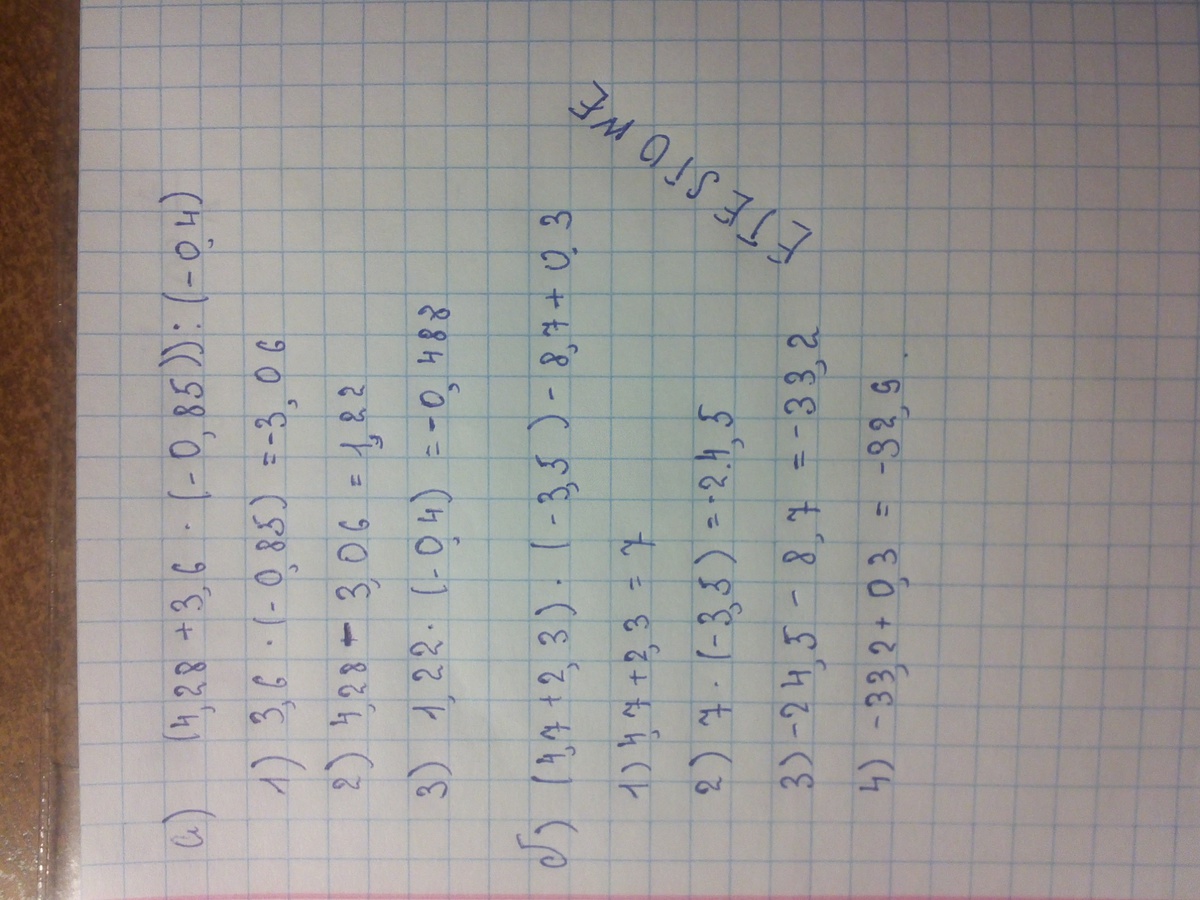 а) (4,28 + 3,6 · (-0,85)) : (-0,4)
1) 3,6 · (-0,85) = -3,06
2) 4,28 - 3,06 = 1,22
3) 1,22 · (-0,4) = -0,488
б) (4,7 + 2,3) · (-3,5) - 8,7 + 0,3
1) 4,7 + 2,3 = 7
2) 7 · (-3,5) = -2.4,5
3) -24,5 - 8,7 = -33,2
4) -33,2 + 0,3 = -32,9